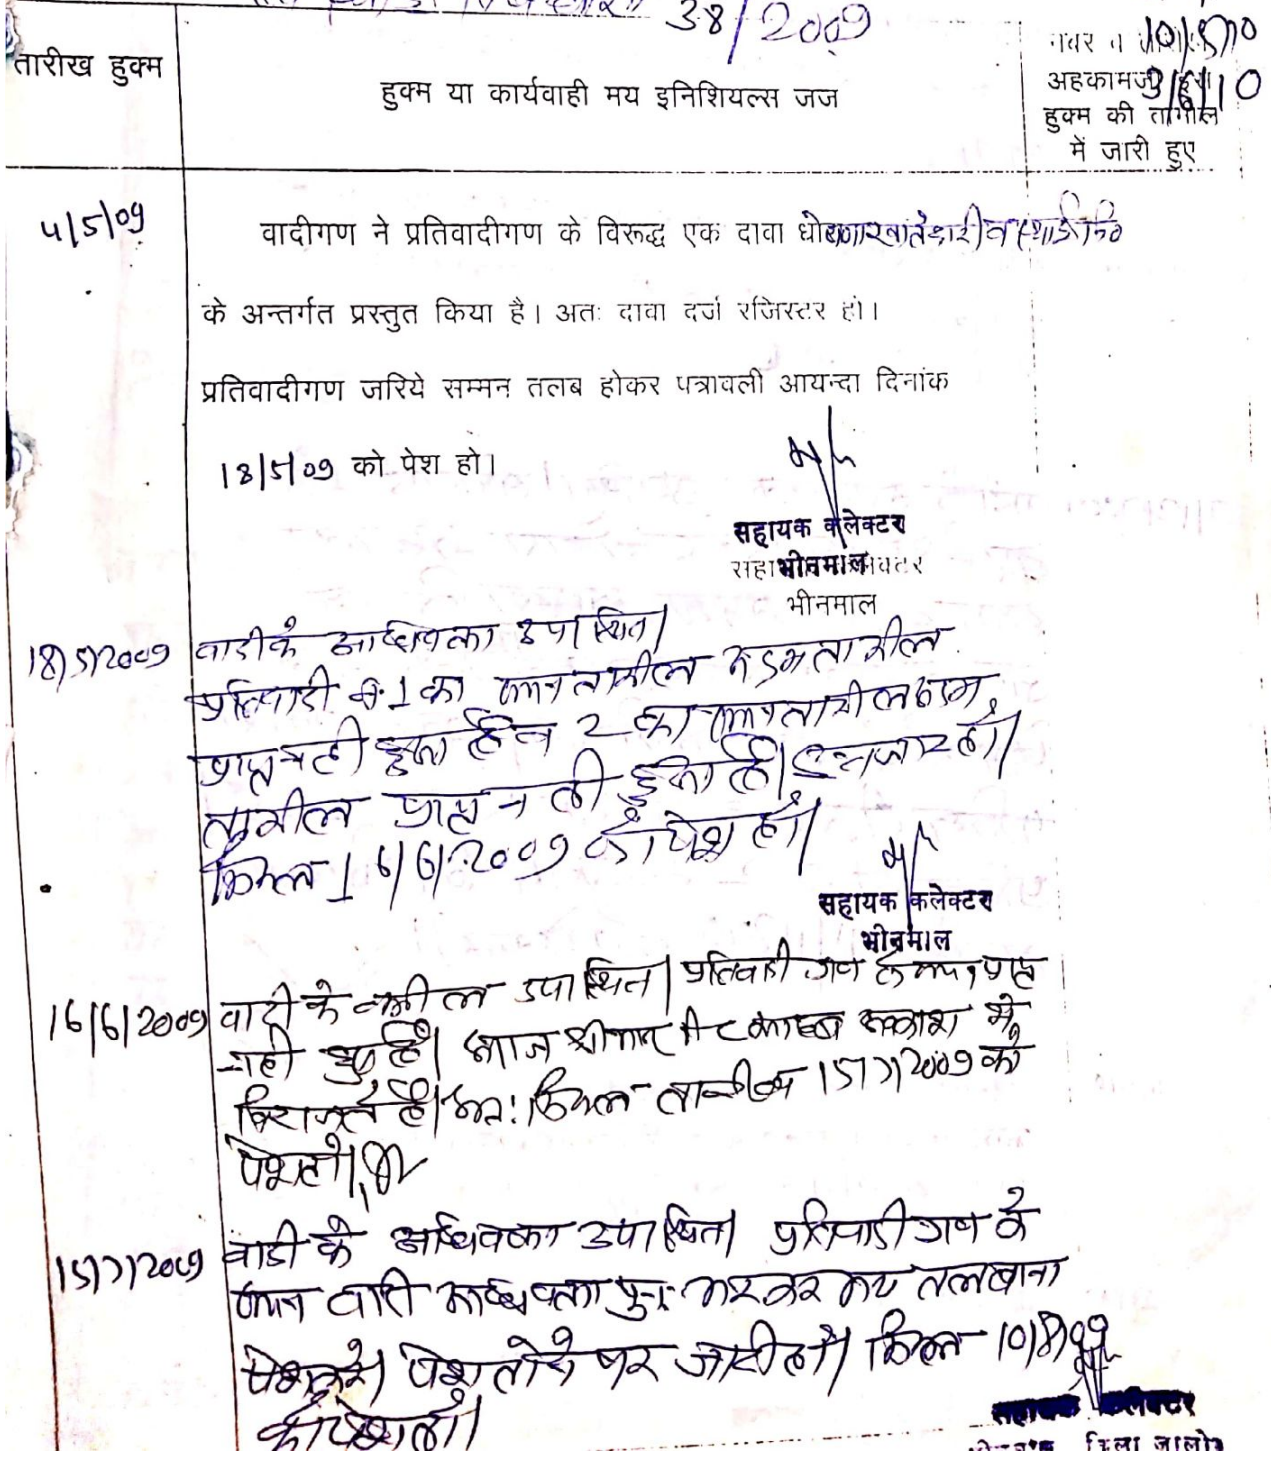 38/2009
10/5/10
तारीख हुक्म
हुक्म या कार्यवाही मय इनिशियल्स जज
अहकाम
9/6/10
हुक्म की तामील
में जारी हुए
4/5/09 वादीगण ने प्रतिवादीगण के विरूद्ध एक दावा
के अन्तर्गत प्रस्तुत किया है। अतः दावा दर्ज रजिस्टर हो।
प्रतिवादीगण जरिये सम्मन तलब होकर पत्रावली आयन्दा दिनांक
18/5/09 को पेश हो।
सहायक कलेक्टर
भीनमाल
भीनमाल
18/5/2009 वादी के अधिवक्ता उपस्थित।
प्रतिवादी सं 1 का तामील
प्राप्त नही हुआ है व 2 का
तामील प्राप्त नही हुआ है। इन्तजार हो।
मिसल 16/6/2009 को पेश हो।
सहायक कलेक्टर
भीनमाल
16/6/2009 वादी के वकील उपस्थित। प्रतिवादी गण के प्राप्त
नही हुए है। आज श्रीमान अवकाश मे
विराजते है। अतः मिसल तारीख 15/7/2009 को
पेश हो।
15/7/2009 वादी के अधिवक्ता उपस्थित। प्रतिवादी गण के
अधिवक्ता पुनः भरकर मय तलबाना
पेश करे। पेश होने पर जारी हो। मिसल 10/8/09
को पेश हो।
सहायक कलेक्टर
जिला जालोर